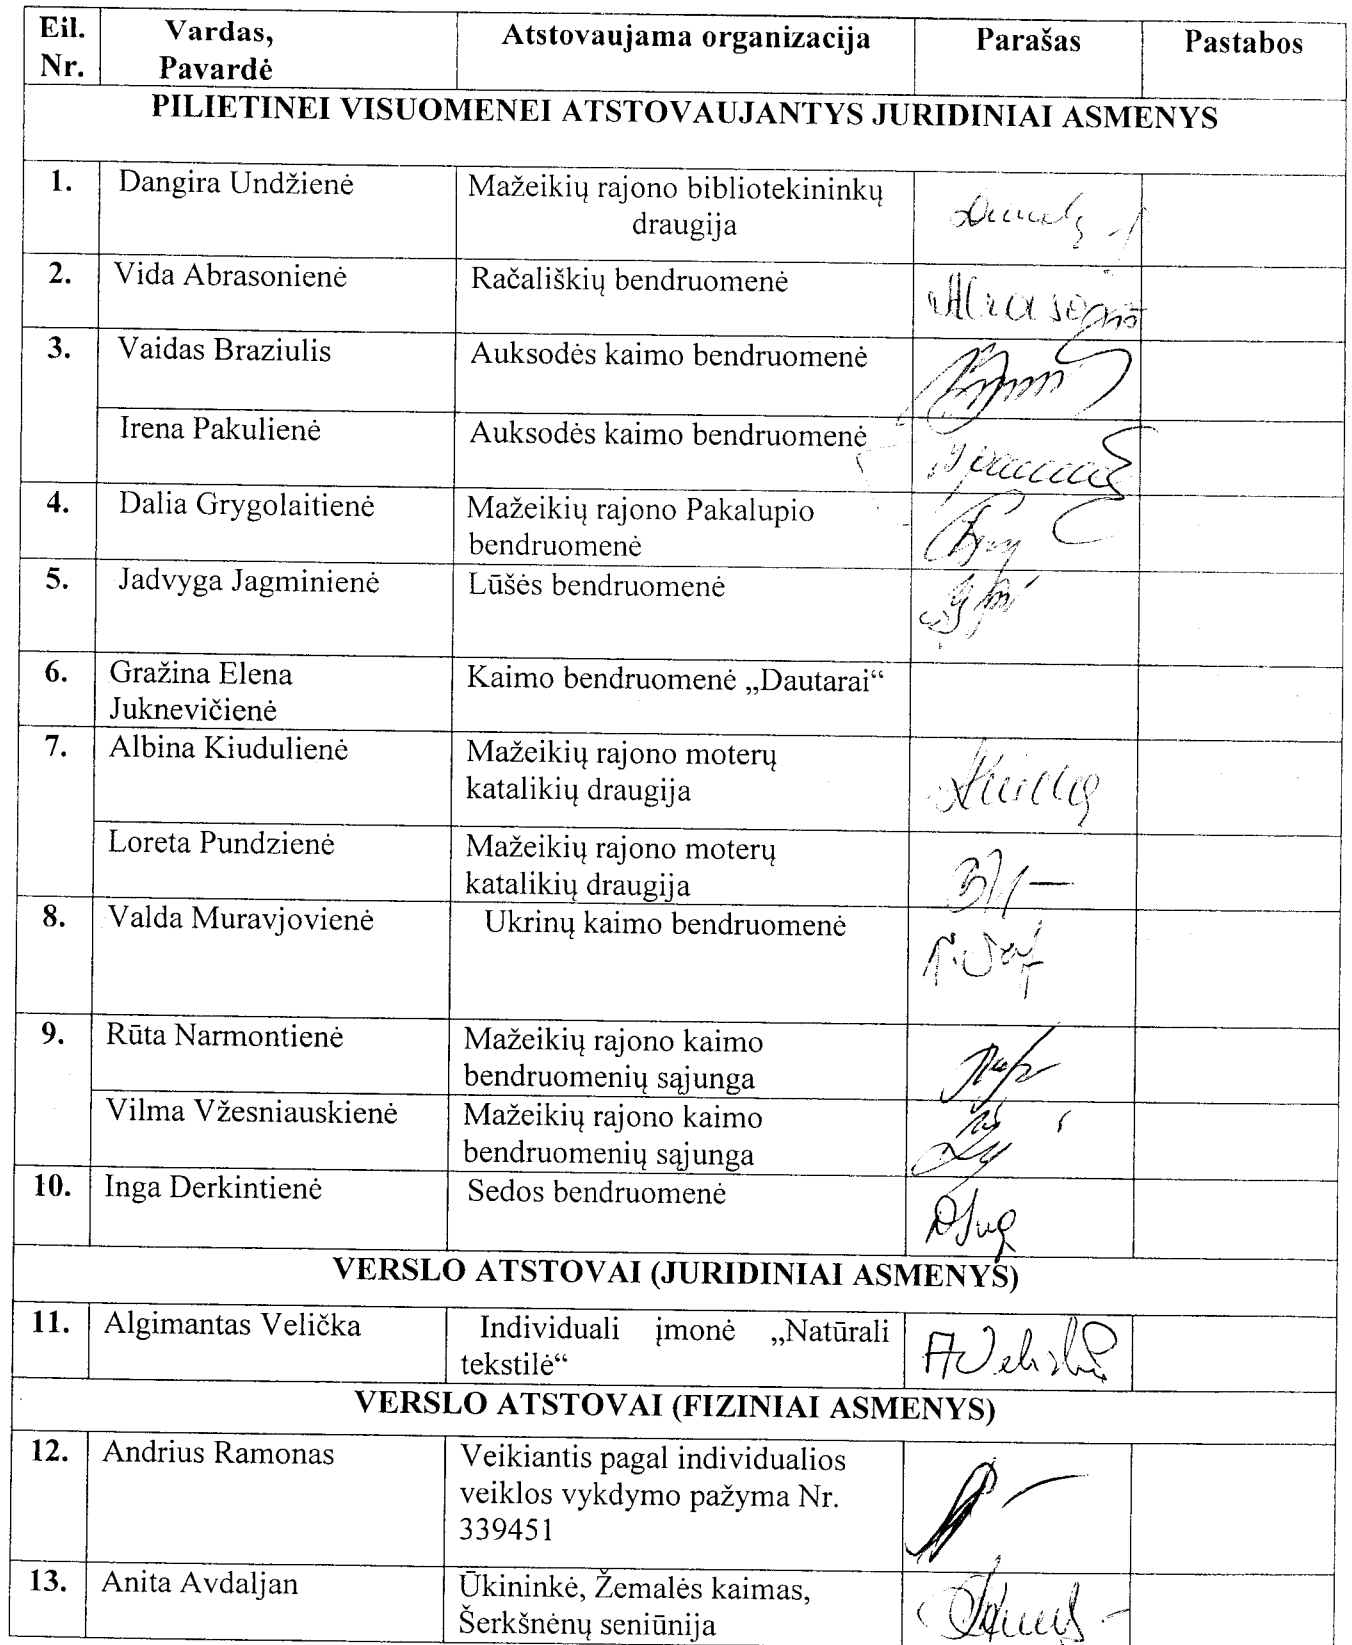 Eil. Nr. Vardas, Pavardė Atstovaujama organizacija Parašas Pastabos
PILIETINEI VISUOMENEI ATSTOVAUJANTYS JURIDINIAI ASMENYS
1. Dangira Undžienė Mažeikių rajono bibliotekininkų
draugija
2. Vida Abrasonienė Račališkių bendruomenė
3. Vaidas Braziulis Auksodės kaimo bendruomenė
Irena Pakulienė Auksodės kaimo bendruomenė
4. Dalia Grygolaitienė Mažeikių rajono Pakalupio
bendruomenė
5. Jadvyga Jagminienė Lūšės bendruomenė
6. Gražina Elena Kaimo bendruomenė „Dautarai“
Juknevičienė
7. Albina Kiudulienė Mažeikių rajono moterų
katalikių draugija
Loreta Pundzienė Mažeikių rajono moterų
katalikių draugija
8. Valda Muravjovienė Ukrinų kaimo bendruomenė
9. Rūta Narmontienė Mažeikių rajono kaimo
bendruomenių sąjunga
Vilma Vžesniauskienė Mažeikių rajono kaimo
bendruomenių sąjunga
10. Inga Derkintienė Sedos bendruomenė
VERSLO ATSTOVAI (JURIDINIAI ASMENYS)
11. Algimantas Velička Individuali įmonė „Natūrali
tekstilė“
VERSLO ATSTOVAI (FIZINIAI ASMENYS)
12. Andrius Ramonas Veikiantis pagal individualios
veiklos vykdymo pažyma Nr.
339451
13. Anita Avdaljan Ūkininkė, Žemalės kaimas,
Šerkšnėnų seniūnija